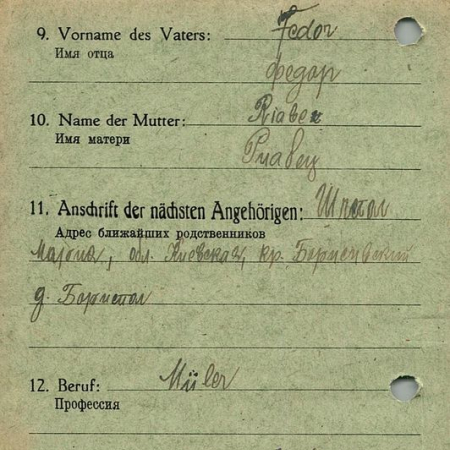 9. Vorname des Vaters: Fedor
Имя отца
Федор
10. Name der Mutter: Riabez
Имя матери
Риабец
11. Anschrift der nächsten Angehörigen:
Адрес ближайших родственников
обл. Киевская, кр.
д. Бориспол
12. Beruf: Müler
Профессия